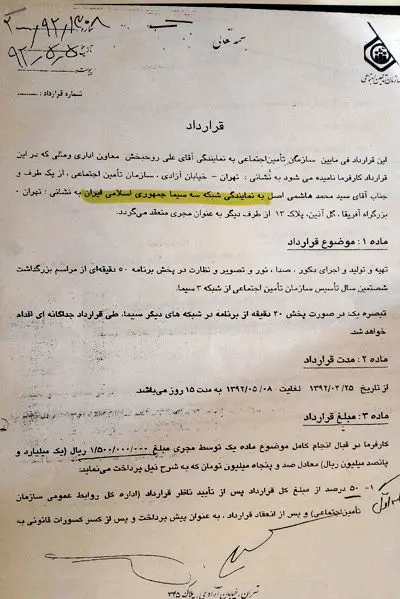 بسمه تعالی
سازمان تأمین اجتماعی
شماره قرارداد: ..........
قرارداد
این قرارداد فی مابین سازمان تأمین‌اجتماعی به نمایندگی آقای علی روحبخش معاون اداری ومالی که در این
قرارداد کارفرما نامیده می شود به نشانی: تهران - خیابان آزادی، سازمان تأمین اجتماعی، از یک طرف و
جناب آقای سید محمد هاشمی اصل به نمایندگی شبکه سه سیما جمهوری اسلامی ایران به نشانی: تهران -
بزرگراه آفریقا، گل آذین، پلاک ۱۳ از طرف دیگر به عنوان مجری منعقد می‌گردد.
ماده ۱: موضوع قرارداد
تهیه و تولید و اجرای دکور، صدا، نور و تصویر و نظارت در پخش برنامه ۵۰ دقیقه‌ای از مراسم بزرگداشت
شصتمین سال تأسیس سازمان تأمین اجتماعی از شبکه ۳ سیما.
تبصره یک: در صورت پخش ۲۰ دقیقه از برنامه در شبکه های دیگر سیما، طی قرارداد جداگانه ای اقدام
خواهد شد.
ماده ۲: مدت قرارداد
از تاریخ ۱۳۹۲/۰۴/۲۵ لغایت ۱۳۹۲/۰۵/۰۸ به مدت ۱۵ روز می‌باشد.
ماده ۳: مبلغ قرارداد
کارفرما در قبال انجام کامل موضوع ماده یک توسط مجری مبلغ ۱/۵۰۰/۰۰۰/۰۰۰ ریال (یک میلیارد و
پانصد میلیون ریال) معادل صد و پنجاه میلیون تومان که به شرح ذیل پرداخت می‌نماید:
۱- ۵۰ درصد از مبلغ کل قرارداد پس از تأیید ناظر قرارداد (اداره کل روابط عمومی سازمان
تأمین‌اجتماعی) و پس از انعقاد قرارداد، به عنوان پیش پرداخت و پس از کسر کسورات قانونی به
تهران، خیابان آزادی، پلاک ۳۴۵